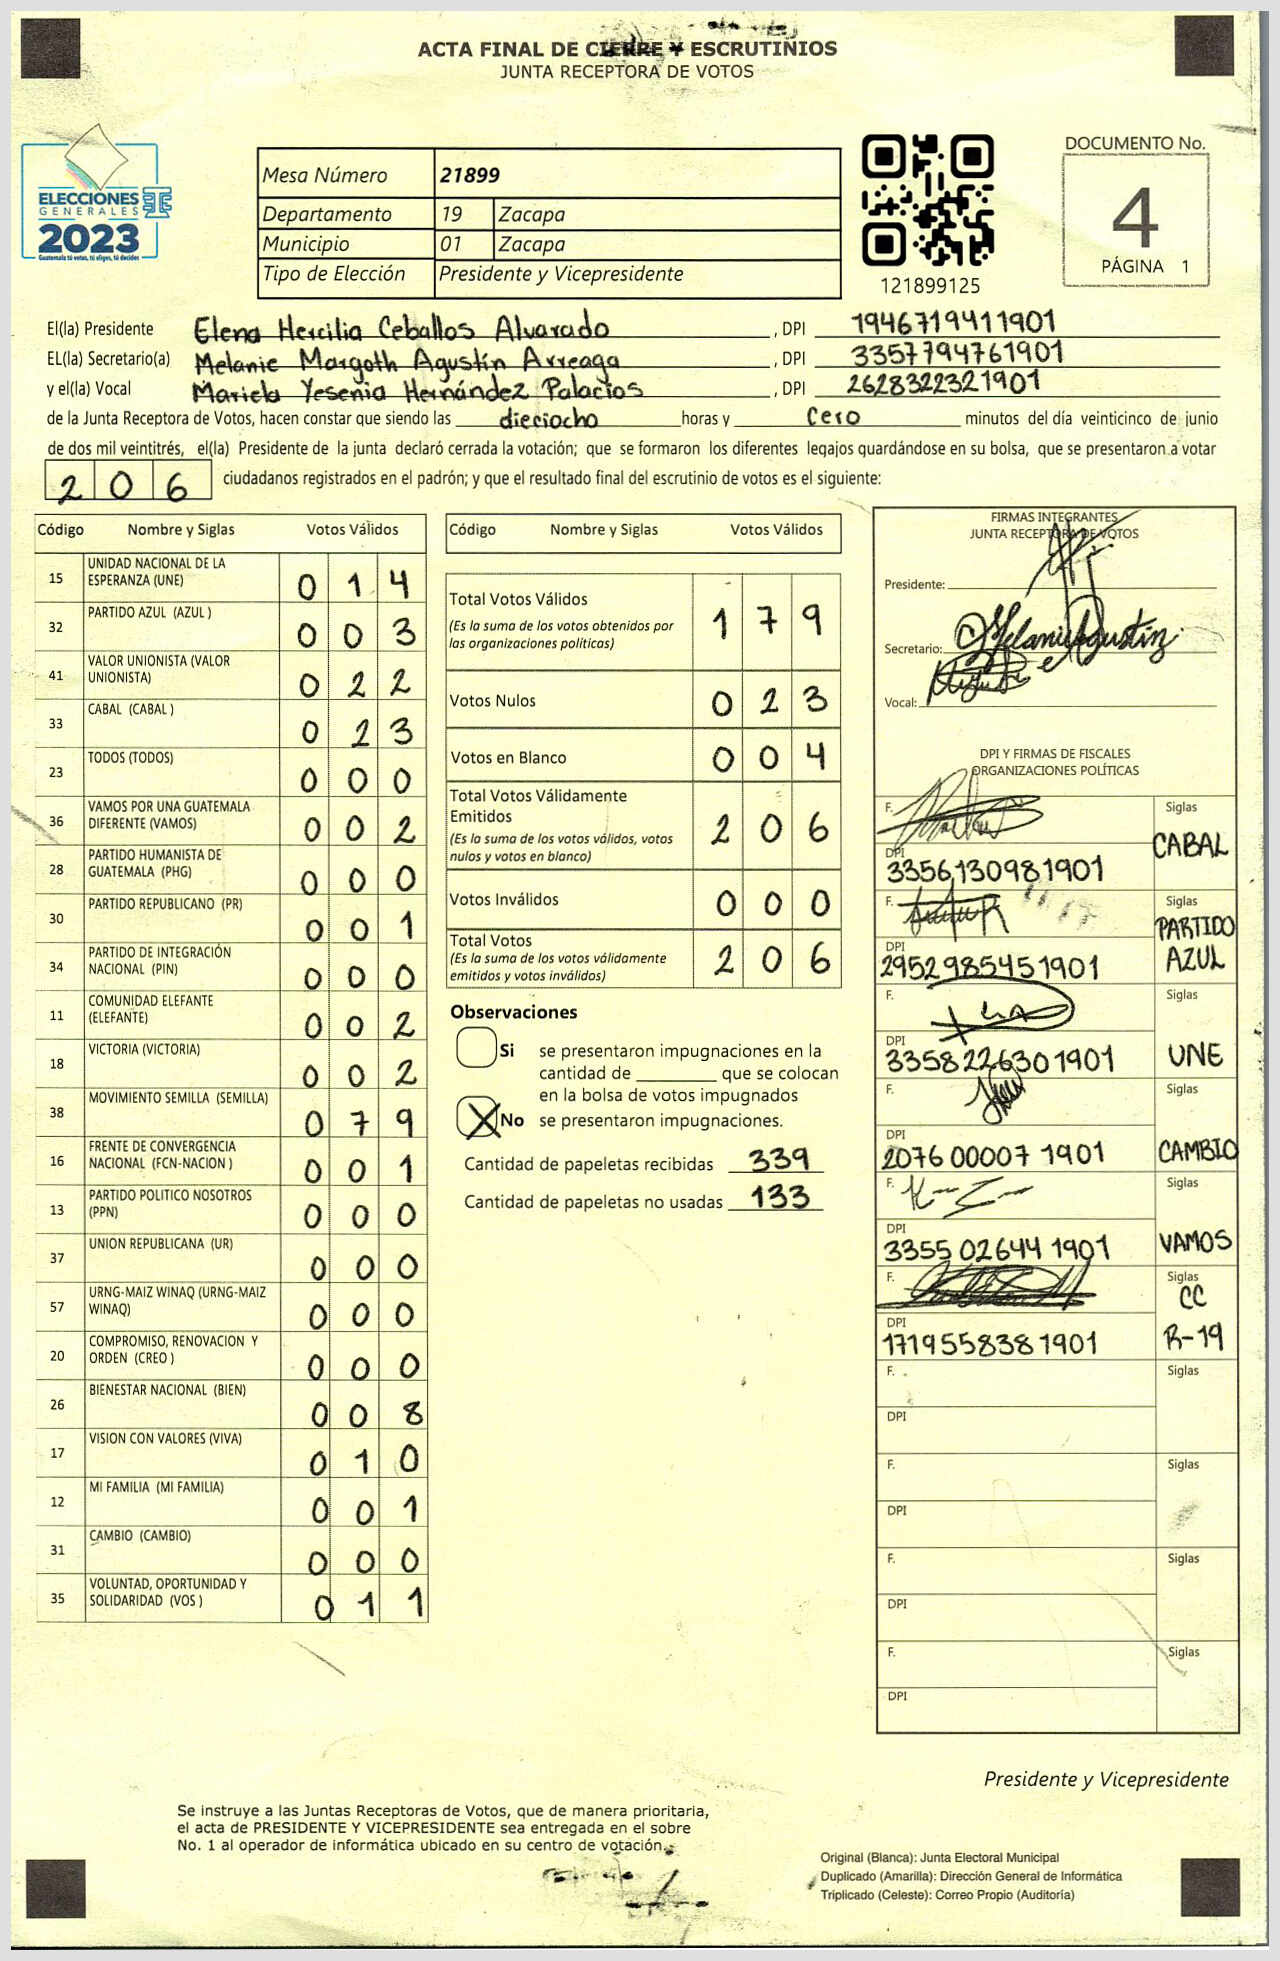 ACTA FINAL DE CIERRE Y ESCRUTINIOS
JUNTA RECEPTORA DE VOTOS
ELECCIONES
GENERALES
2023
Guatemala tú votas, tú eliges, tú decides
Mesa Número 21899
Departamento 19 Zacapa
Municipio 01 Zacapa
Tipo de Elección Presidente y Vicepresidente
121899125
DOCUMENTO No.
4
PÁGINA 1
El(la) Presidente Elena Hercilia Ceballos Alvarado , DPI 1946719411901
EL(la) Secretario(a) Melanie Margoth Agustín Arreaga , DPI 3357794761901
y el(la) Vocal Mariela Yesenia Hernández Palacios , DPI 2628322321901
de la Junta Receptora de Votos, hacen constar que siendo las dieciocho horas y cero minutos del día veinticinco de junio
de dos mil veintitrés, el(la) Presidente de la junta declaró cerrada la votación; que se formaron los diferentes legajos guardándose en su bolsa, que se presentaron a votar
206 ciudadanos registrados en el padrón; y que el resultado final del escrutinio de votos es el siguiente:
Código Nombre y Siglas Votos Válidos
15 UNIDAD NACIONAL DE LA ESPERANZA (UNE) 014
32 PARTIDO AZUL (AZUL ) 003
41 VALOR UNIONISTA (VALOR UNIONISTA) 022
33 CABAL (CABAL ) 023
23 TODOS (TODOS) 000
36 VAMOS POR UNA GUATEMALA DIFERENTE (VAMOS) 002
28 PARTIDO HUMANISTA DE GUATEMALA (PHG) 000
30 PARTIDO REPUBLICANO (PR) 001
34 PARTIDO DE INTEGRACIÓN NACIONAL (PIN) 000
11 COMUNIDAD ELEFANTE (ELEFANTE) 002
18 VICTORIA (VICTORIA) 002
38 MOVIMIENTO SEMILLA (SEMILLA) 079
16 FRENTE DE CONVERGENCIA NACIONAL (FCN-NACION ) 001
13 PARTIDO POLITICO NOSOTROS (PPN) 000
37 UNION REPUBLICANA (UR) 000
57 URNG-MAIZ WINAQ (URNG-MAIZ WINAQ) 000
20 COMPROMISO, RENOVACION Y ORDEN (CREO ) 000
26 BIENESTAR NACIONAL (BIEN) 008
17 VISION CON VALORES (VIVA) 010
12 MI FAMILIA (MI FAMILIA) 001
31 CAMBIO (CAMBIO) 000
35 VOLUNTAD, OPORTUNIDAD Y SOLIDARIDAD (VOS ) 011
Código Nombre y Siglas Votos Válidos
Total Votos Válidos 179
(Es la suma de los votos obtenidos por
las organizaciones políticas)
Votos Nulos 023
Votos en Blanco 004
Total Votos Válidamente
Emitidos 206
(Es la suma de los votos válidos, votos
nulos y votos en blanco)
Votos Inválidos 000
Total Votos 206
(Es la suma de los votos válidamente
emitidos y votos inválidos)
Observaciones
Si se presentaron impugnaciones en la
cantidad de ________ que se colocan
en la bolsa de votos impugnados
X No se presentaron impugnaciones.
Cantidad de papeletas recibidas 339
Cantidad de papeletas no usadas 133
FIRMAS INTEGRANTES
JUNTA RECEPTORA DE VOTOS
Presidente:
Secretario: Melanie Agustín
Vocal:
DPI Y FIRMAS DE FISCALES
ORGANIZACIONES POLÍTICAS
F. Siglas
CABAL
DPI
3356130981901
F. Siglas
PARTIDO
AZUL
DPI
2952985451901
F. Siglas
DPI
3358226301901 UNE
F. Siglas
DPI
2076 00007 1901 CAMBIO
F. Siglas
DPI
3355 02644 1901 VAMOS
F. Siglas
CC
DPI
1719558381901 R-19
F. Siglas
DPI
F. Siglas
DPI
F. Siglas
DPI
F. Siglas
DPI
Presidente y Vicepresidente
Se instruye a las Juntas Receptoras de Votos, que de manera prioritaria,
el acta de PRESIDENTE Y VICEPRESIDENTE sea entregada en el sobre
No. 1 al operador de informática ubicado en su centro de votación.
Original (Blanca): Junta Electoral Municipal
Duplicado (Amarilla): Dirección General de Informática
Triplicado (Celeste): Correo Propio (Auditoría)